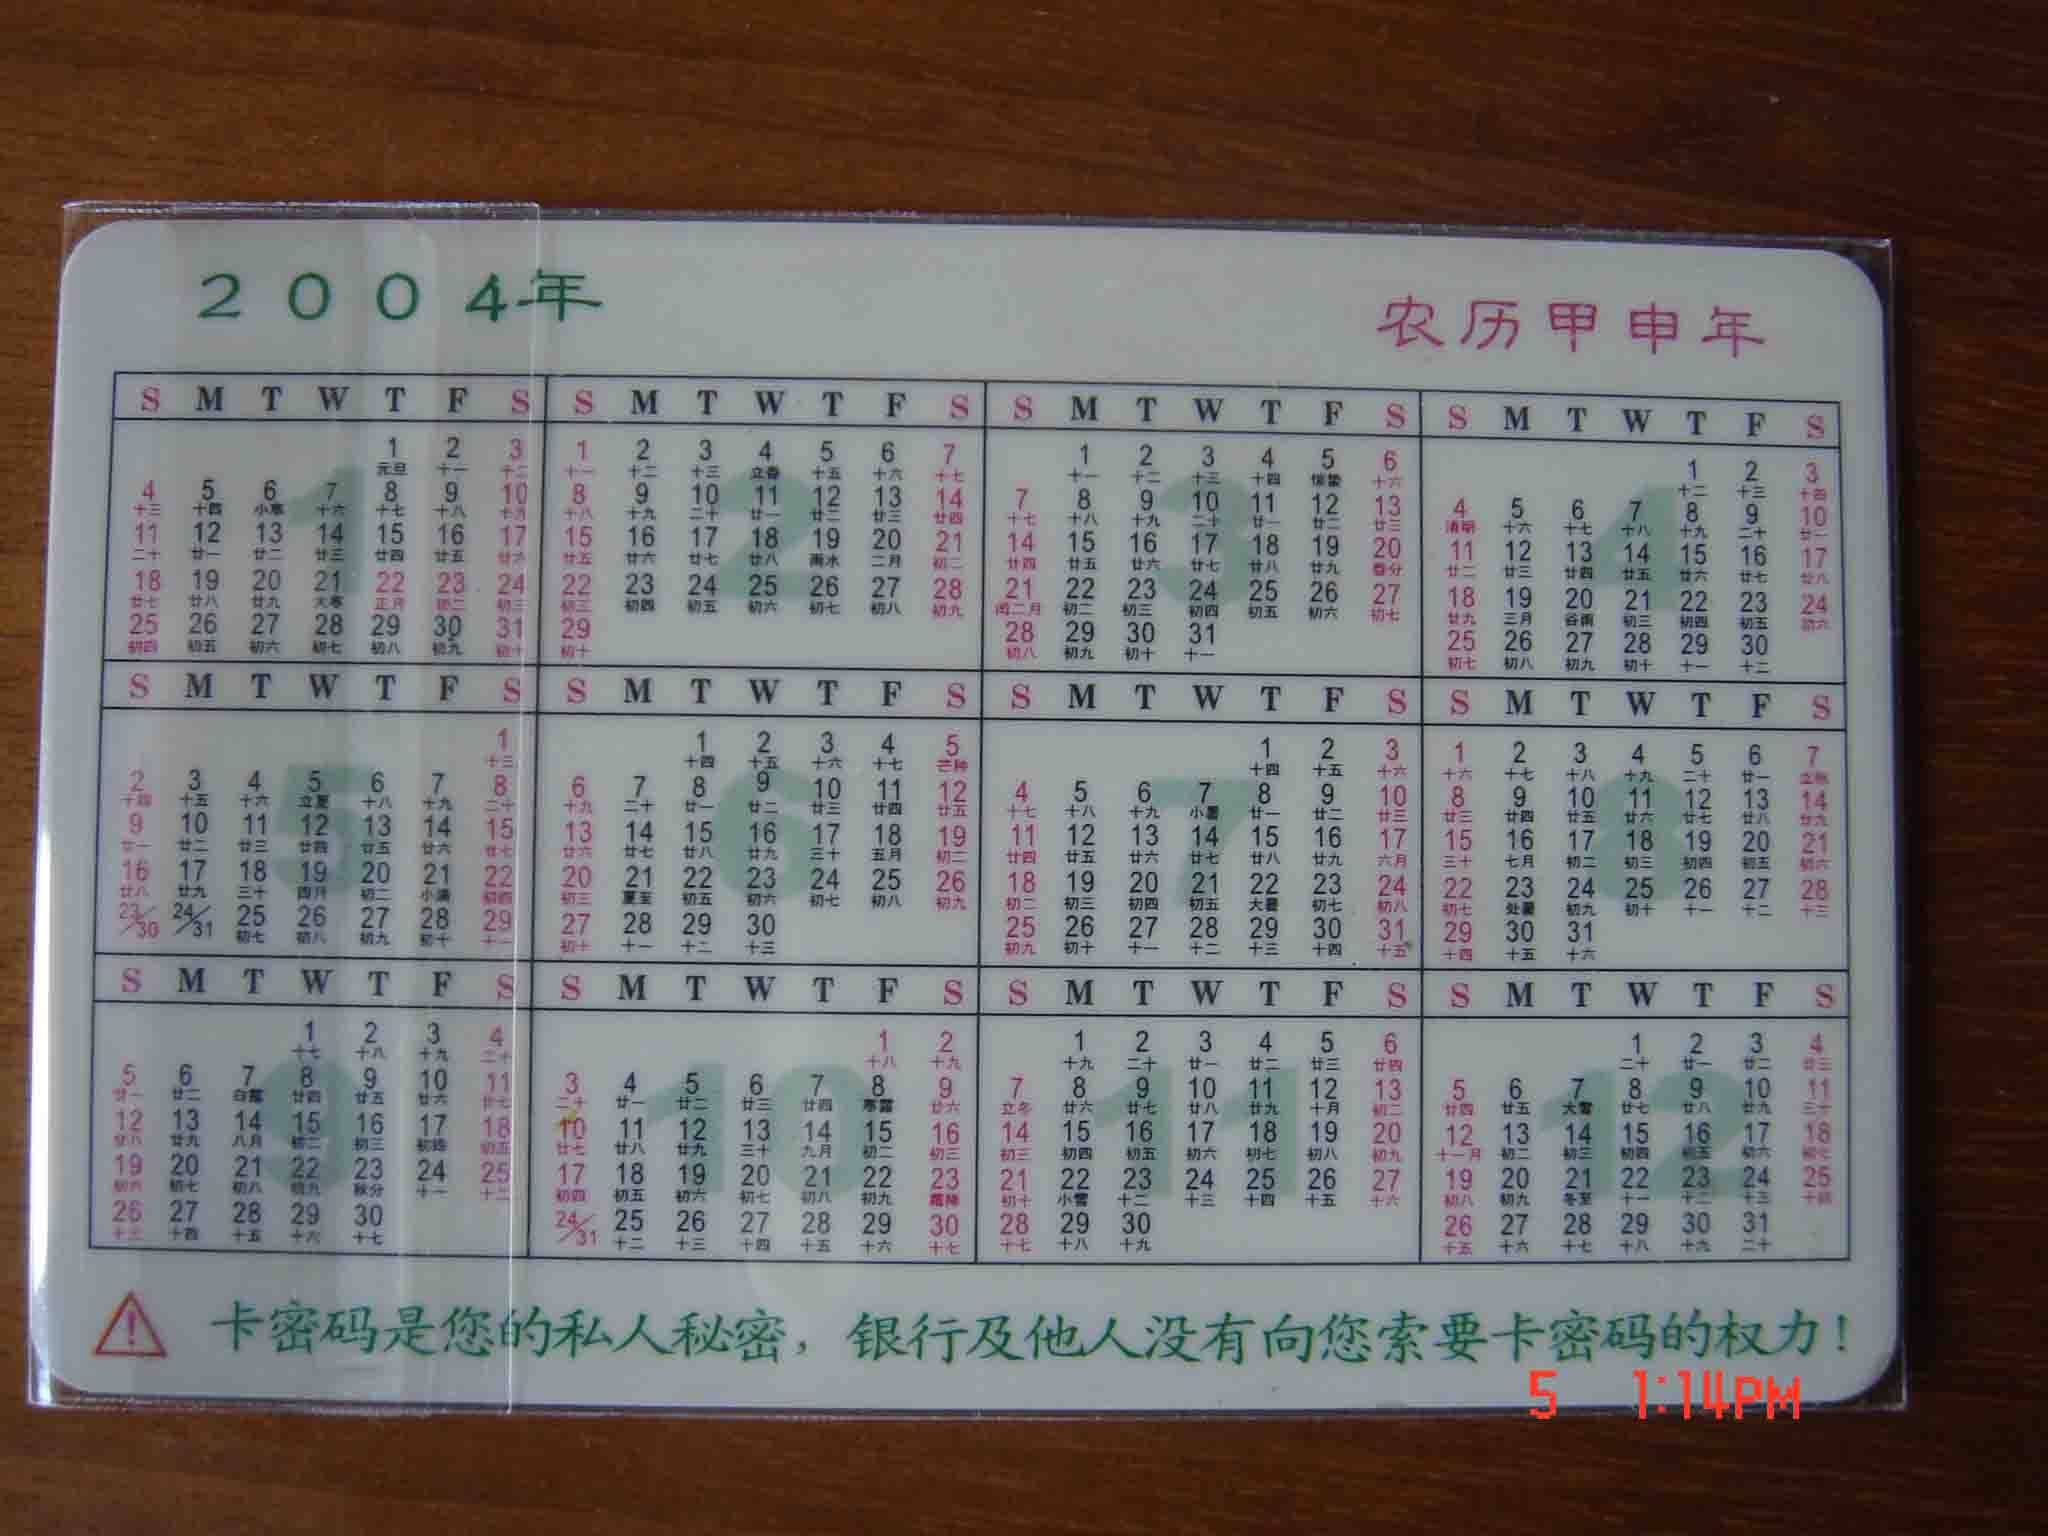 2004年
农历甲申年
S M T W T F S
1 2 3
元旦 十一 十二
4 5 6 7 8 9 10
十三 十四 小寒 十六 十七 十八 十九
11 12 13 14 15 16 17
二十 廿一 廿二 廿三 廿四 廿五 廿六
18 19 20 21 22 23 24
廿七 廿八 廿九 大寒 正月 初二 初三
25 26 27 28 29 30 31
初四 初五 初六 初七 初八 初九 初十
1
S M T W T F S
1 2 3 4 5 6 7
十一 十二 十三 立春 十五 十六 十七
8 9 10 11 12 13 14
十八 十九 二十 廿一 廿二 廿三 廿四
15 16 17 18 19 20 21
廿五 廿六 廿七 廿八 雨水 二月 初二
22 23 24 25 26 27 28
初三 初四 初五 初六 初七 初八 初九
29
初十
2
S M T W T F S
1 2 3 4 5 6
十一 十二 十三 十四 惊蛰 十六
7 8 9 10 11 12 13
十七 十八 十九 二十 廿一 廿二 廿三
14 15 16 17 18 19 20
廿四 廿五 廿六 廿七 廿八 廿九 春分
21 22 23 24 25 26 27
闰二月 初二 初三 初四 初五 初六 初七
28 29 30 31
初八 初九 初十 十一
3
S M T W T F S
1 2 3
十二 十三 十四
4 5 6 7 8 9 10
清明 十六 十七 十八 十九 二十 廿一
11 12 13 14 15 16 17
廿二 廿三 廿四 廿五 廿六 廿七 廿八
18 19 20 21 22 23 24
廿九 三月 谷雨 初三 初四 初五 初六
25 26 27 28 29 30
初七 初八 初九 初十 十一 十二
4
S M T W T F S
1
十三
2 3 4 5 6 7 8
十四 十五 十六 立夏 十八 十九 二十
9 10 11 12 13 14 15
廿一 廿二 廿三 廿四 廿五 廿六 廿七
16 17 18 19 20 21 22
廿八 廿九 三十 四月 初二 小满 初四
23/30 24/31 25 26 27 28 29
初七 初八 初九 初十 十一
5
S M T W T F S
1 2 3 4 5
十四 十五 十六 十七 芒种
6 7 8 9 10 11 12
十九 二十 廿一 廿二 廿三 廿四 廿五
13 14 15 16 17 18 19
廿六 廿七 廿八 廿九 三十 五月 初二
20 21 22 23 24 25 26
初三 夏至 初五 初六 初七 初八 初九
27 28 29 30
初十 十一 十二 十三
6
S M T W T F S
1 2 3
十四 十五 十六
4 5 6 7 8 9 10
十七 十八 十九 小暑 廿一 廿二 廿三
11 12 13 14 15 16 17
廿四 廿五 廿六 廿七 廿八 廿九 六月
18 19 20 21 22 23 24
初二 初三 初四 初五 大暑 初七 初八
25 26 27 28 29 30 31
初九 初十 十一 十二 十三 十四 十五
7
S M T W T F S
1 2 3 4 5 6 7
十六 十七 十八 十九 二十 廿一 立秋
8 9 10 11 12 13 14
廿三 廿四 廿五 廿六 廿七 廿八 廿九
15 16 17 18 19 20 21
三十 七月 初二 初三 初四 初五 初六
22 23 24 25 26 27 28
初七 处暑 初九 初十 十一 十二 十三
29 30 31
十四 十五 十六
8
S M T W T F S
1 2 3 4
十七 十八 十九 二十
5 6 7 8 9 10 11
廿一 廿二 白露 廿四 廿五 廿六 廿七
12 13 14 15 16 17 18
廿八 廿九 八月 初二 初三 初四 初五
19 20 21 22 23 24 25
初六 初七 初八 初九 秋分 十一 十二
26 27 28 29 30
十三 十四 十五 十六 十七
9
S M T W T F S
1 2
十八 十九
3 4 5 6 7 8 9
二十 廿一 廿二 廿三 廿四 寒露 廿六
10 11 12 13 14 15 16
廿七 廿八 廿九 三十 九月 初二 初三
17 18 19 20 21 22 23
初四 初五 初六 初七 初八 初九 霜降
24/31 25 26 27 28 29 30
十二 十三 十四 十五 十六 十七
10
S M T W T F S
1 2 3 4 5 6
十九 二十 廿一 廿二 廿三 廿四
7 8 9 10 11 12 13
立冬 廿六 廿七 廿八 廿九 十月 初二
14 15 16 17 18 19 20
初三 初四 初五 初六 初七 初八 初九
21 22 23 24 25 26 27
初十 小雪 十二 十三 十四 十五 十六
28 29 30
十七 十八 十九
11
S M T W T F S
1 2 3 4
二十 廿一 廿二 廿三
5 6 7 8 9 10 11
廿四 廿五 大雪 廿七 廿八 廿九 三十
12 13 14 15 16 17 18
十一月 初二 初三 初四 初五 初六 初七
19 20 21 22 23 24 25
初八 初九 冬至 十一 十二 十三 十四
26 27 28 29 30 31
十五 十六 十七 十八 十九 二十
12
! 卡密码是您的私人秘密，银行及他人没有向您索要卡密码的权力！
5 1:14PM